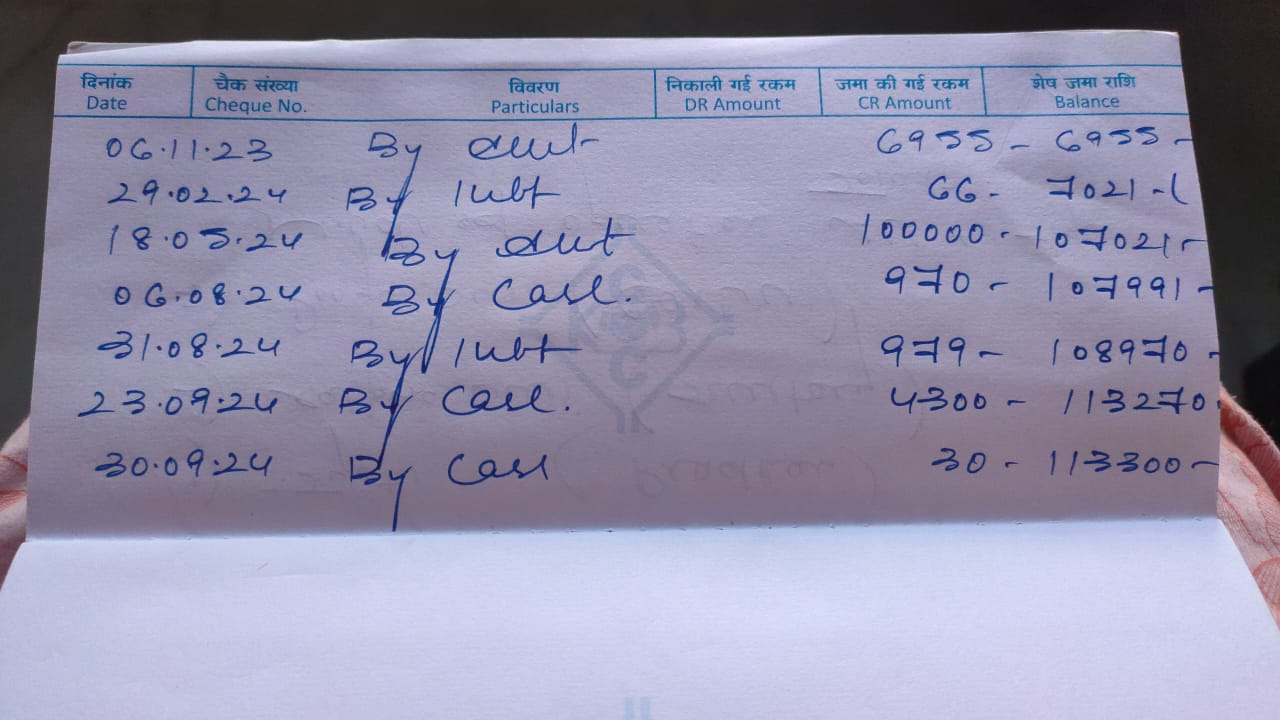 दिनांक चैक संख्या विवरण निकाली गई रकम जमा की गई रकम शेष जमा राशि
Date Cheque No. Particulars DR Amount CR Amount Balance
06.11.23 By 6955 - 6955 -
29.02.24 By 66 - 7021 -
18.05.24 By 100000 - 107021 -
06.08.24 By Cash. 970 - 107991 -
31.08.24 By 979 - 108970 -
23.09.24 By Cash. 4300 - 113270 -
30.09.24 By Cash 30 - 113300 -